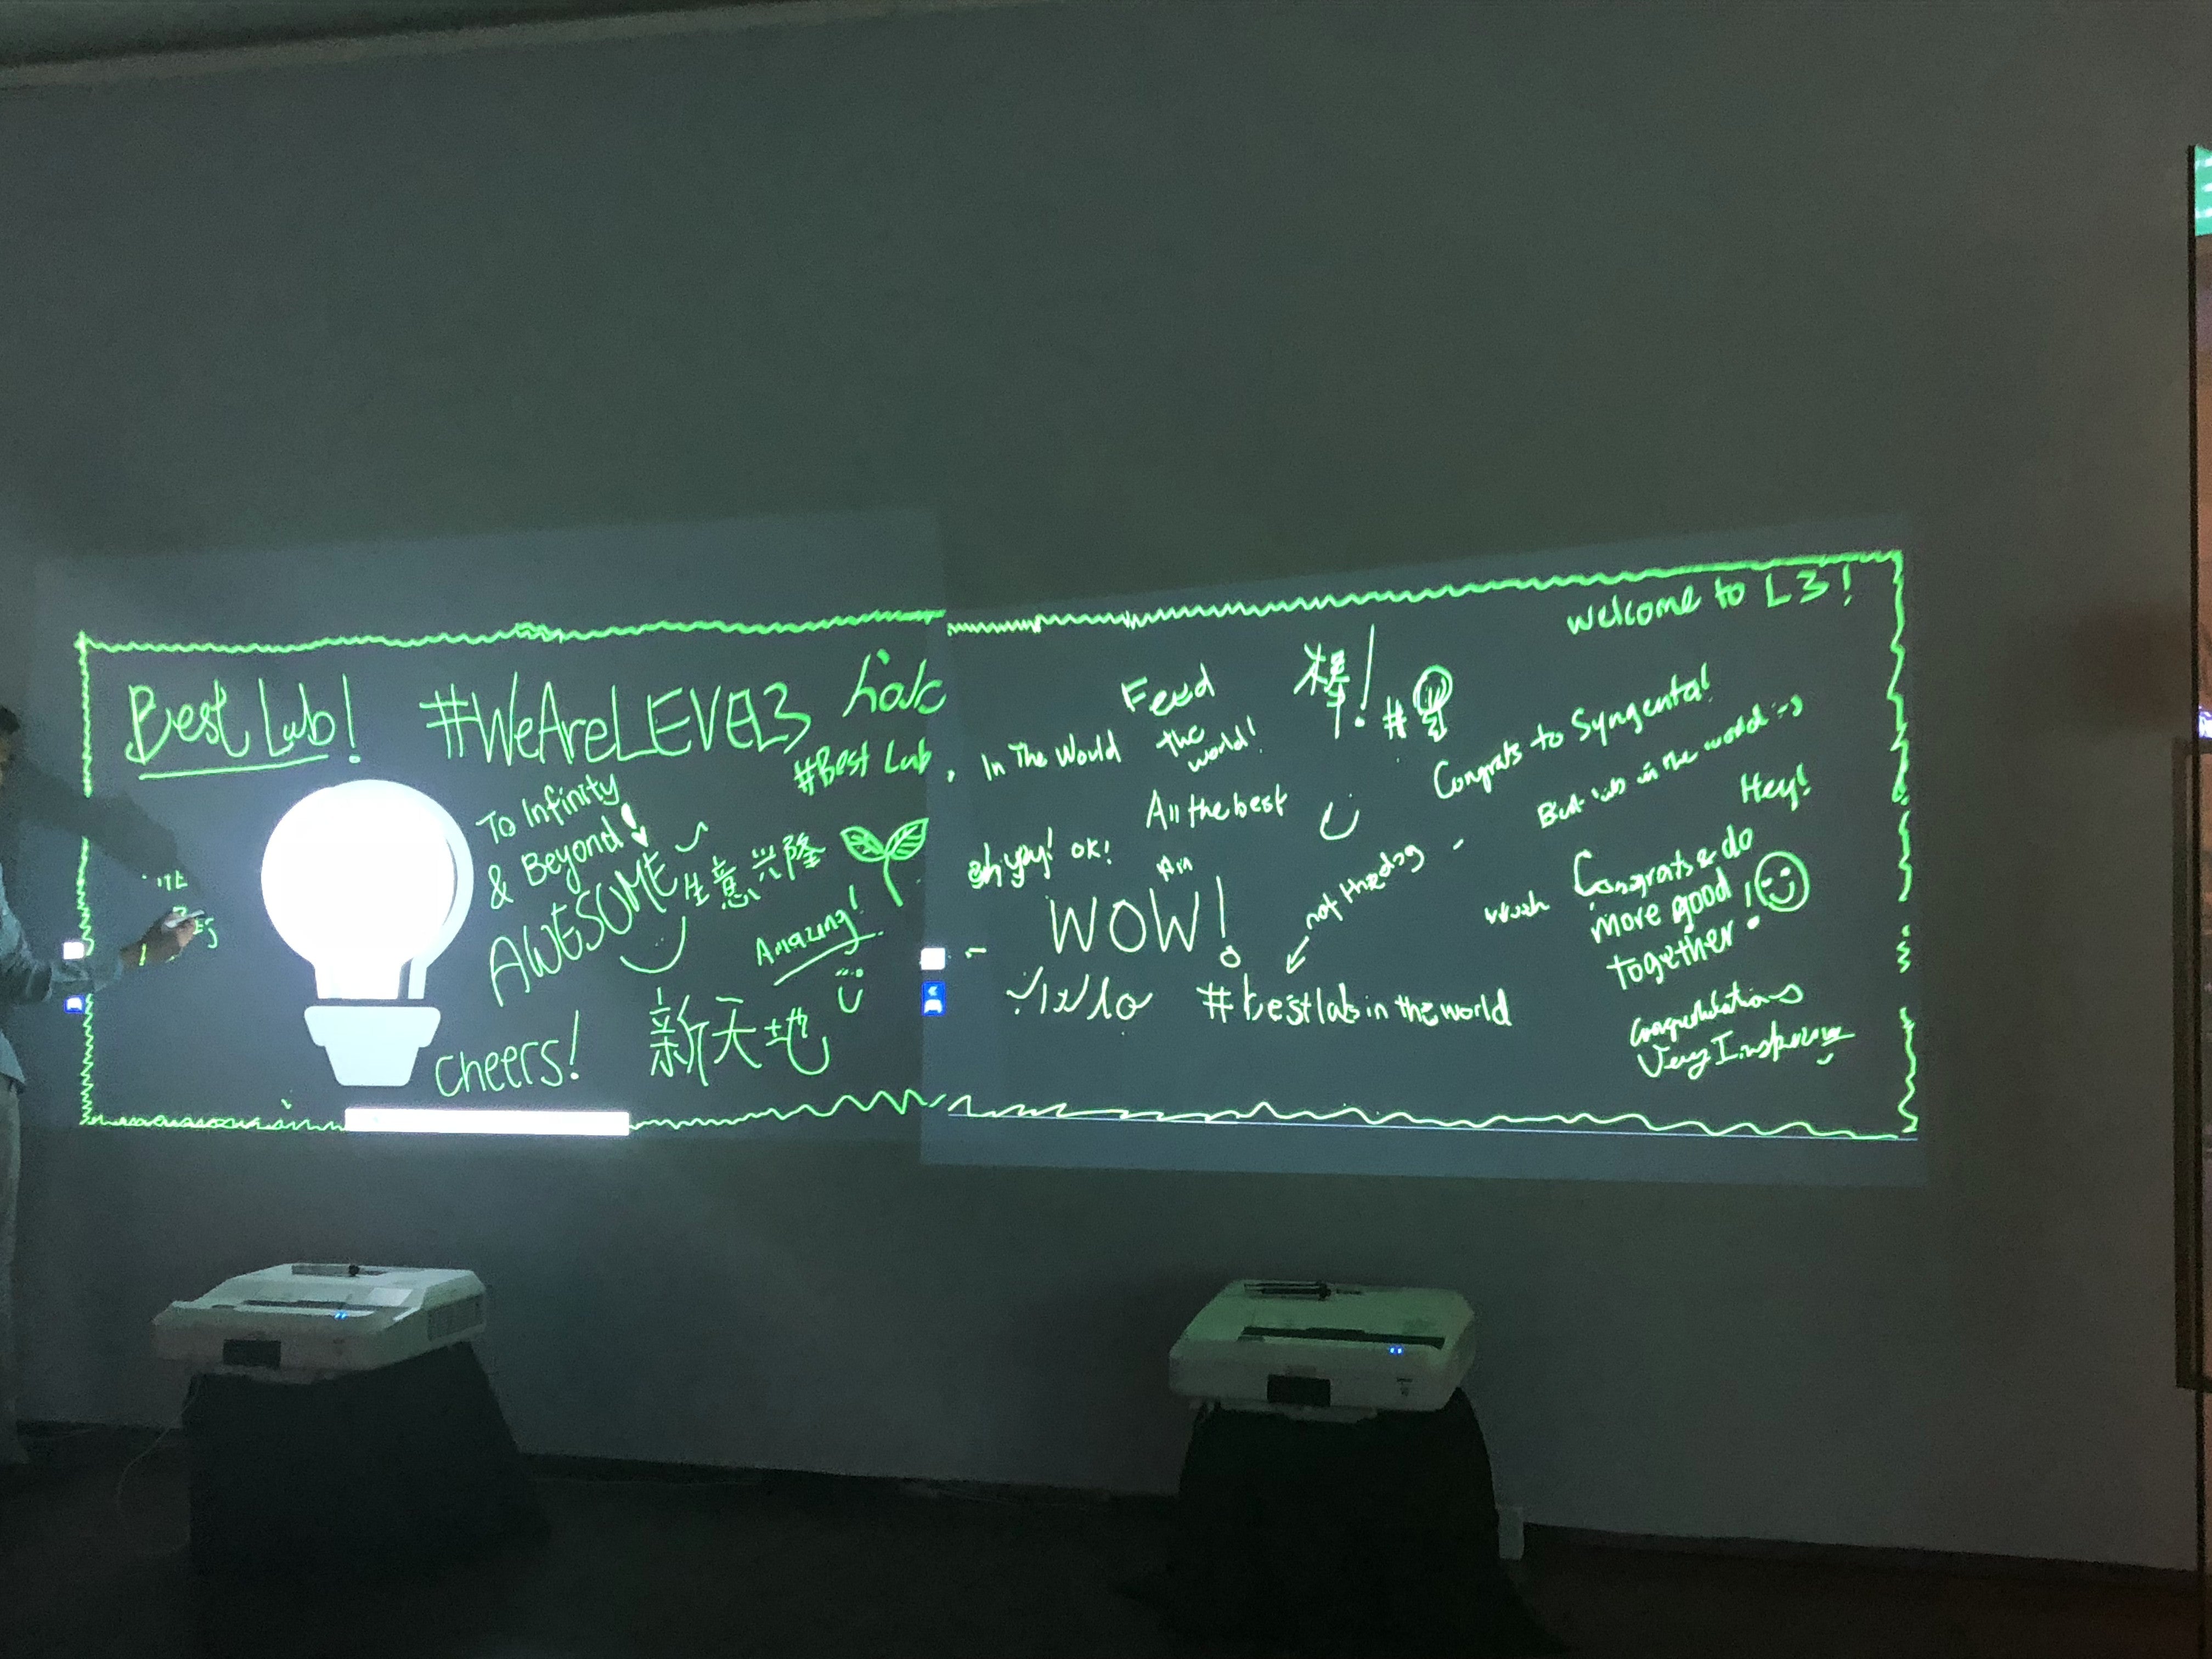 Best Lab!
#WeAreLEVEL3
#Best Lab
To Infinity
& Beyond!
AWESOME
生意兴隆
Amazing!
cheers!
新天地
In The World
Feed
the
world!
棒!
#
welcome to L3!
Congrats to Syngenta!
Best lab in the world :-)
All the best
oh yay! ok!
WOW!
not the dog
#bestlabintheworld
Hey!
Congrats & do
more good
together.
Congratulations
Very Inspiring